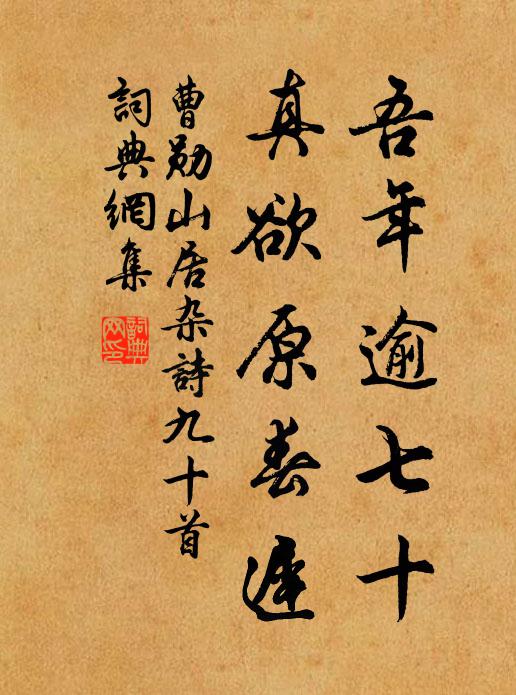 吾年逾七十
真欲原春遲
曹勛山居杂詩九十首
詞典網集
詞典
网印